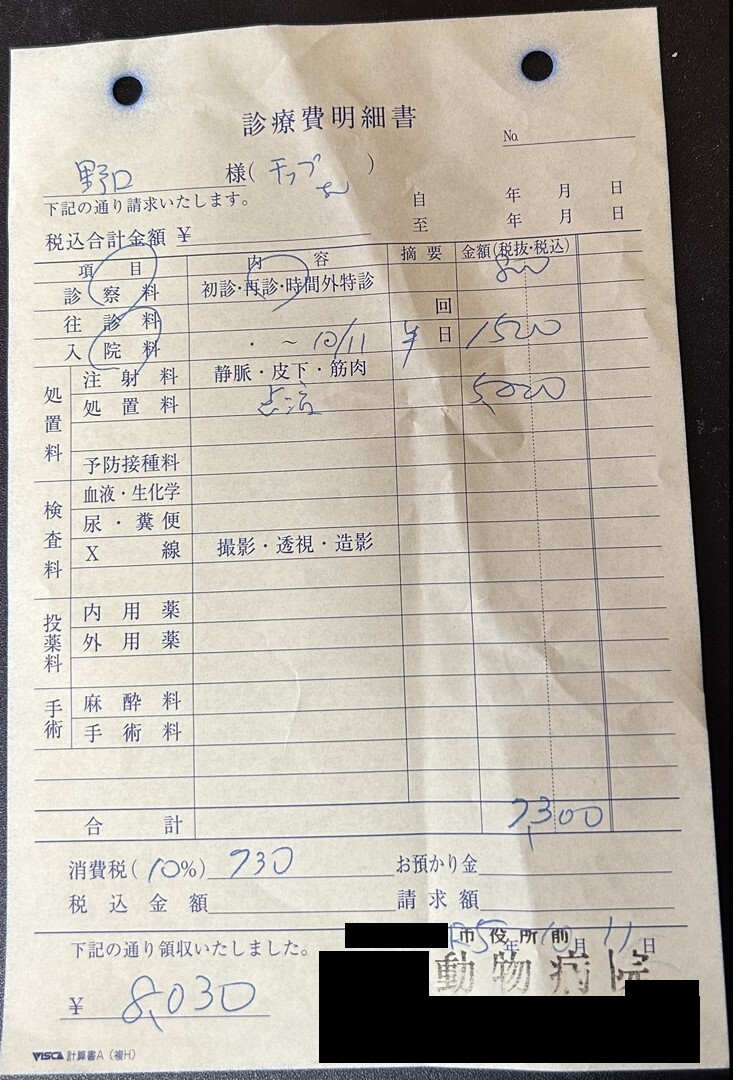 診療費明細書
No.
野口 様(チップちゃん)
下記の通り請求いたします。
自 年 月 日
至 年 月 日
税込合計金額 ¥
項目 内容 摘要 金額(税抜・税込)
診察料 初診・再診・時間外特診 800
往診料 回
入院料 ・ ~ 10/11 半日 1500
処置料 注射料 静脈・皮下・筋肉
処置料 点滴 5,000
予防接種料
検査料 血液・生化学
尿・糞便
X線 撮影・透視・造影
投薬料 内用薬
外用薬
手術 麻酔料
手術料
合計 7,300
消費税(10%) 730 お預かり金
税込金額 請求額
下記の通り領収いたしました。 R5年10月11日
市役所前
動物病院
¥ 8,030
VISCA 計算書A(複H)